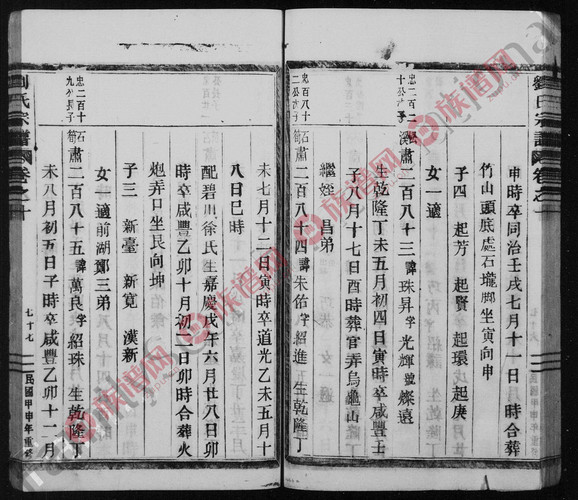 劉氏宗譜 卷之十
申時卒同治壬戌七月十一日 時合葬
竹山頭底處石壠脚坐寅向申
子四 起芳 起賢 起環 起庚
女一適
忠二百二十公 子
溪 肅二百八十三 諱珠昇 字光輝 號燦遠
生乾隆丁未五月初四日寅時卒咸豐壬
子八月十七日酉時葬官弄烏龜山
繼姪 昌弟
忠百八十二公 子
石筍 肅二百八十四 諱朱佑 字紹進 生乾隆丁
未七月十二日寅時卒道光乙未五月十
八日巳時
配碧川徐氏生嘉慶戊午六月廿八日卯
時卒咸豐乙卯十月初 日卯時合葬火
炮弄口坐艮向坤
子三 新臺 新寬 漢新
女一適前湖鄭三弟
忠二百十九公長子
石筍 肅二百八十五 諱萬良 字紹珠 生乾隆丁
未八月初五日子時卒咸豐乙卯十一月
劉氏宗譜 卷之十
七十七
民國甲申年重修
族谱网